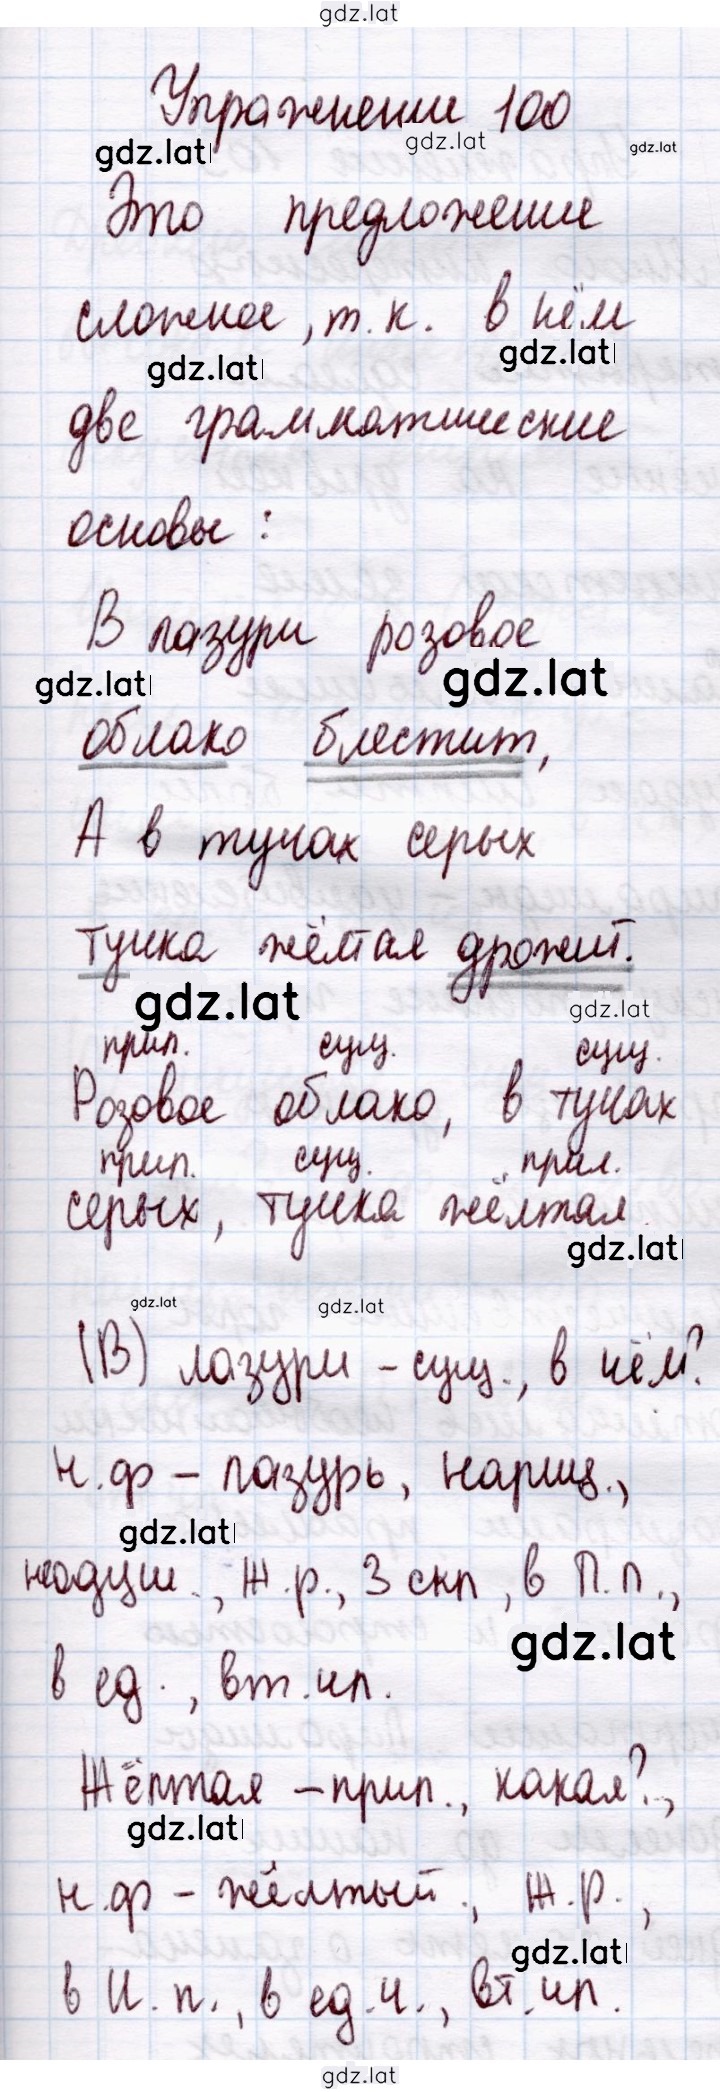 gdz.lat
Упражнение 100
gdz.lat gdz.lat gdz.lat
Это предложение
сложное, т.к. в нём
gdz.lat gdz.lat
две грамматические
основы:
В лазури розовое
gdz.lat gdz.lat
облако блестит,
А в тучах серых
тучка жёлтая дрожит.
gdz.lat gdz.lat
прил. сущ. сущ.
Розовое облако, в тучах
прил. сущ. прил.
серых, тучка жёлтая
gdz.lat
gdz.lat gdz.lat
(В) лазури – сущ., в чём?
н.ф – лазурь, нариц.,
gdz.lat
неодуш., ж.р., 3 скл, в П.п.,
gdz.lat
в ед., вт.чл.
Жёлтая – прил., какая?,
gdz.lat
н.ф – жёлтый, ж.р.,
gdz.lat
в И.п., в ед.ч., вт.чл.
gdz.lat